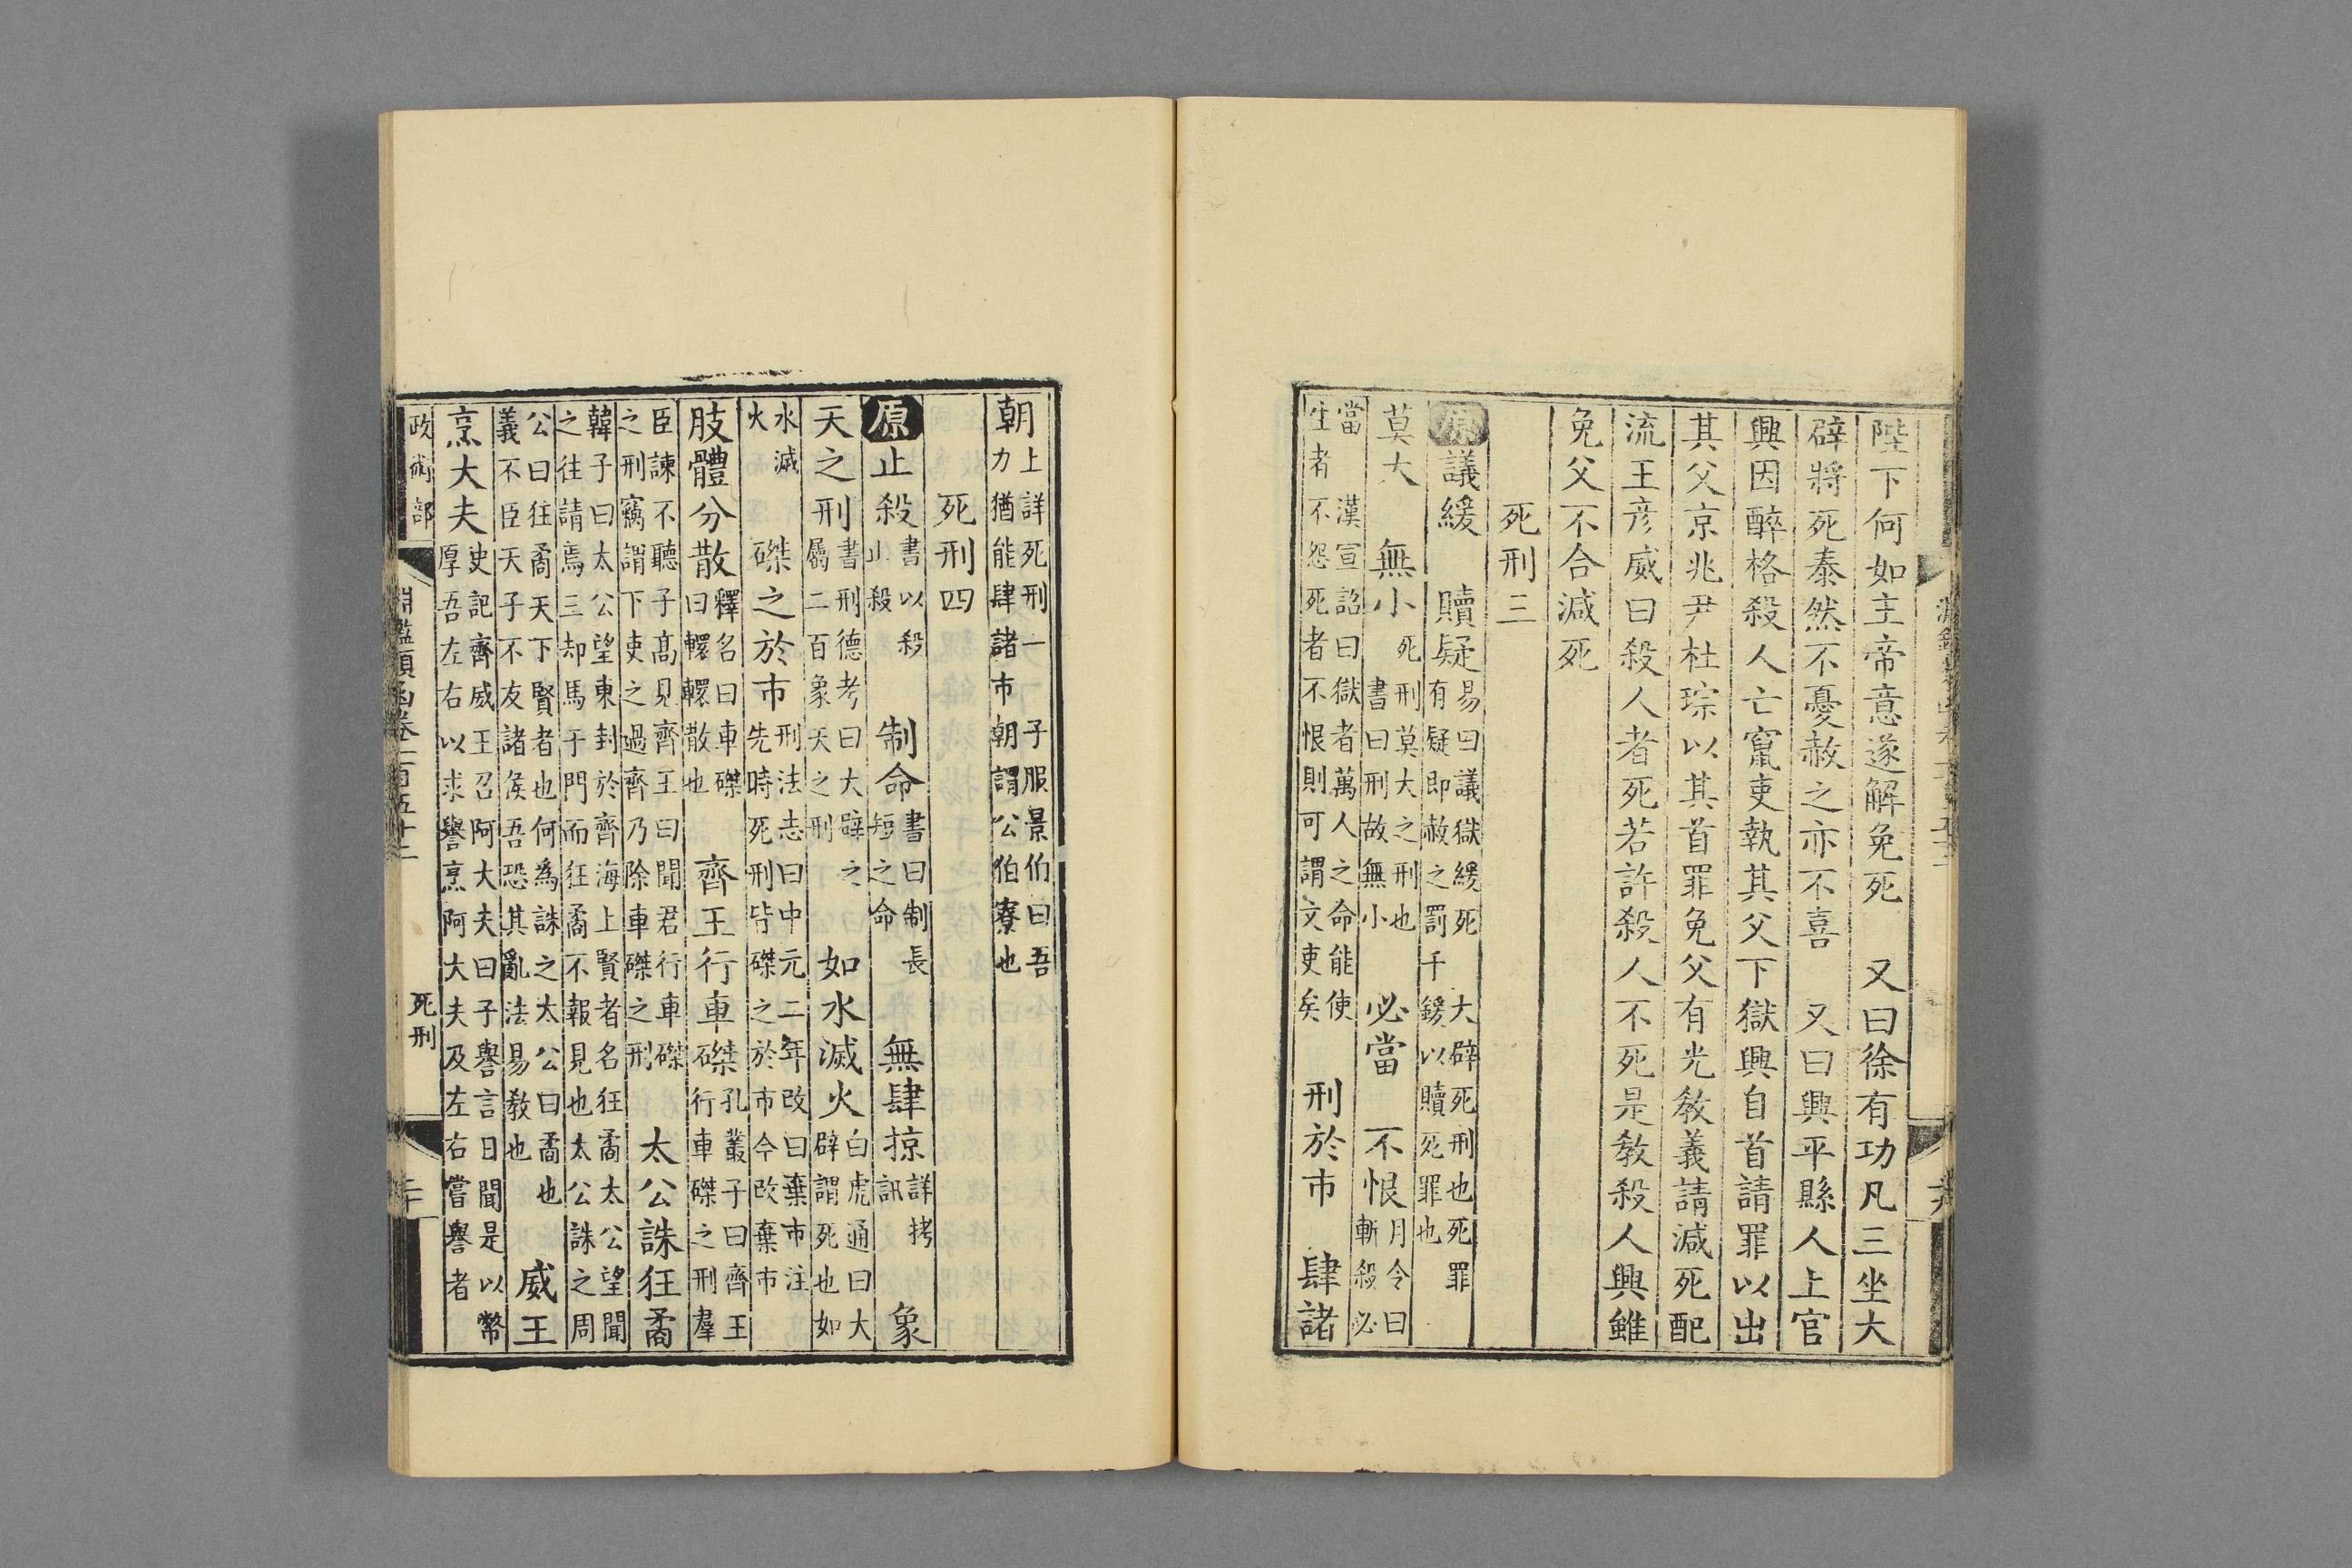 陛下何如主帝意遂解免死　又曰徐有功凡三坐大
辟將死泰然不憂赦之亦不喜　又曰興平縣人上官
興因醉格殺人亡竄吏執其父下獄興自首請罪以出
其父京兆尹杜琮以其首罪免父有光教義請減死配
流王彦威曰殺人者死若許殺人不死是教殺人興雖
免父不合減死
死刑三
原議緩　贖疑
易曰議獄緩死　大辟死刑也死罪
有疑即赦之罰千鍰以贖死罪也
莫大　無小
死刑莫大之刑也
書曰刑故無小
必當　不恨
月令曰
斬殺必
當　漢宣詔曰獄者萬人之命能使
生者不怨死者不恨則可謂文吏矣
刑於市　肆諸
朝
上詳死刑一　子服景伯曰吾
力猶能肆諸市朝謂公伯寮也
死刑四
原止殺
書以殺
止殺
制命
書曰制長
短之命
無肆掠
詳拷
訊
象
天之刑
書刑德考曰大辟之
屬二百象天之刑
如水滅火
白虎通曰大
辟謂死也如
水滅
火
磔之於市
刑法志曰中元二年改曰棄市注
先時死刑皆磔之於市今改棄市
肢體分散
釋名曰車磔
曰轘轘散也
齊王行車磔
孔叢子曰齊王
行車磔之刑羣
臣諫不聽子髙見齊王曰聞君行車磔
之刑竊謂下吏之過齊乃除車磔之刑
太公誅狂矞
韓子曰太公望東封於齊海上賢者名狂矞太公望聞
之往請焉三却馬于門而狂矞不報見也太公誅之周
公曰往矞天下賢者也何為誅之太公曰矞也
義不臣天子不友諸侯吾恐其亂法易教也
威王
烹大夫
史記齊威王召阿大夫曰子譽言日聞是以幣
厚吾左右以求譽烹阿大夫及左右嘗譽者
政術部
淵鑑類函卷一百五十二
死刑
二十